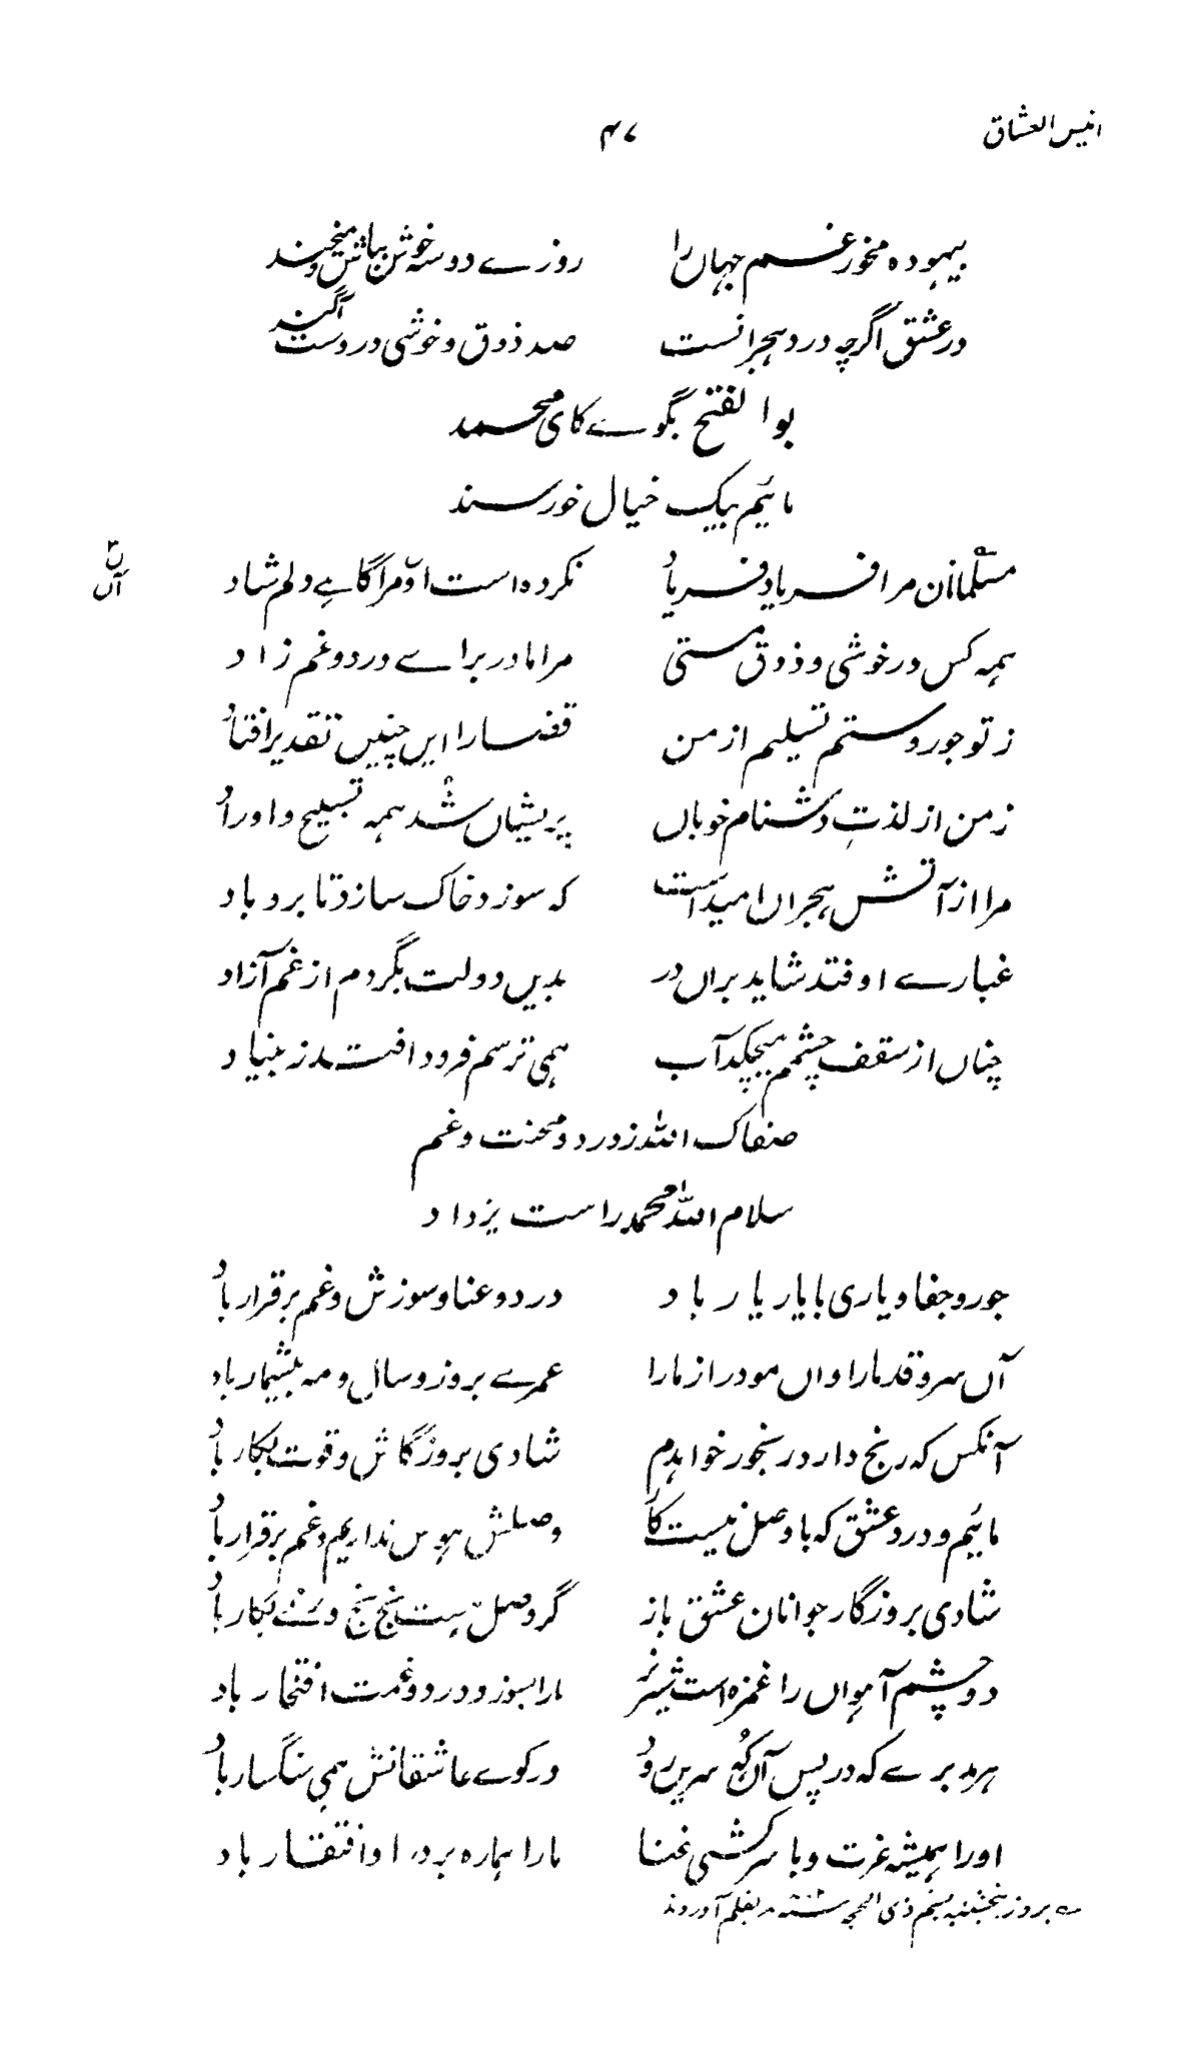 انیس العشاق ۴۷
بیہودہ مخور غم جہاں را روزے دو سہ خوش بباش و میخند
در عشق اگرچہ درد ہجرانست صد ذوق و خوشی دروست آگند
بوالفتح بگوے کای محمد
مائیم بیک خیال خورسند
مسلمانان مرا فریاد فریاد نکردہ است او مرا گاہے دلم شاد
ہمہ کس در خوشی و ذوق مستی مرا مادر براے درد و غم زاد
ز تو جور و ستم تسلیم از من قضا را ایں چنیں تقدیر افتاد
زمن از لذتِ دشنام خوباں پریشاں شد ہمہ تسبیح و اوراد
مرا از آتش ہجراں امید است کہ سوزد خاک سازد تا برد باد
غبارے اوفتد شاید براں در بدیں دولت بگردم از غم آزاد
چناں از سقف چشمم میچکد آب ہمی ترسم فرود افتد ز بنیاد
صفاک اللہ ز درد و محنت و غم
سلام اللہ محمد راست یزداد
جور و جفا و یاری با یار یار باد درد و عنا و سوزش و غم برقرار باد
آں سرو قد ما را واں مو دراز ما را عمرے بروز و سال و مہ بیشمار باد
آنکس کہ رنج دارد رنجور خواہدم شادی بروزگاش و قوت بکار باد
مائیم و درد عشق کہ با وصل نیست کار وصلش ہوس نداریم و غم برقرار باد
شادی بروزگار جوانان عشق باز گر وصل نیست بکار باد
دو چشم آہواں را غمزہ است شیر نر مارا بسوز و درد و غمت افتخار باد
ہر مدبرے کہ در پس آں کہ سرین رود در کوے عاشقانش ہمی سنگسار باد
اورا ہمیشہ عزت و با سرکشی غنا مارا ہمارہ بردر او افتقار باد
بروز پنجشنبہ ذی الحجہ بقلم آوردند